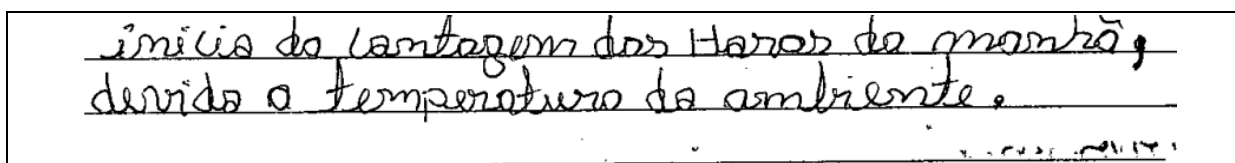 início da contagem das Horas da manhã,
devido a temperatura do ambiente.